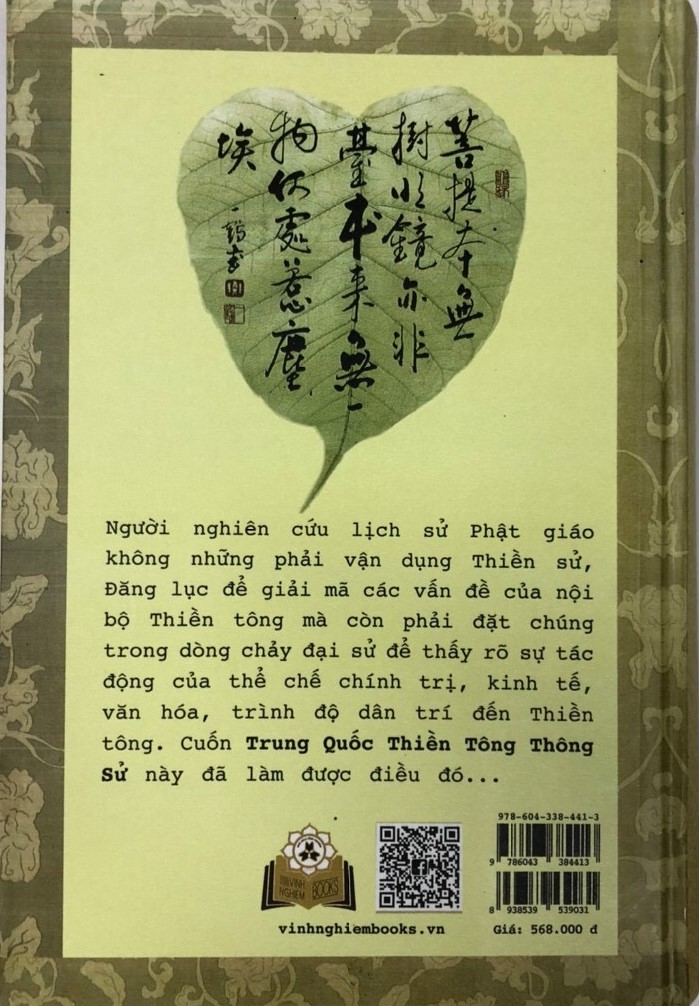 菩提本無
樹明鏡亦非
臺本来無一
物何處惹塵
埃
Người nghiên cứu lịch sử Phật giáo
không những phải vận dụng Thiền sử,
Đăng lục để giải mã các vấn đề của nội
bộ Thiền tông mà còn phải đặt chúng
trong dòng chảy đại sử để thấy rõ sự tác
động của thể chế chính trị, kinh tế,
văn hóa, trình độ dân trí đến Thiền
tông. Cuốn Trung Quốc Thiền Tông Thông
Sử này đã làm được điều đó...
VINH
NGHIEM
BOOKS
vinhnghiembooks.vn
978-604-338-441-3
9 786043 384413
8 938539 539031
Giá: 568.000 đ